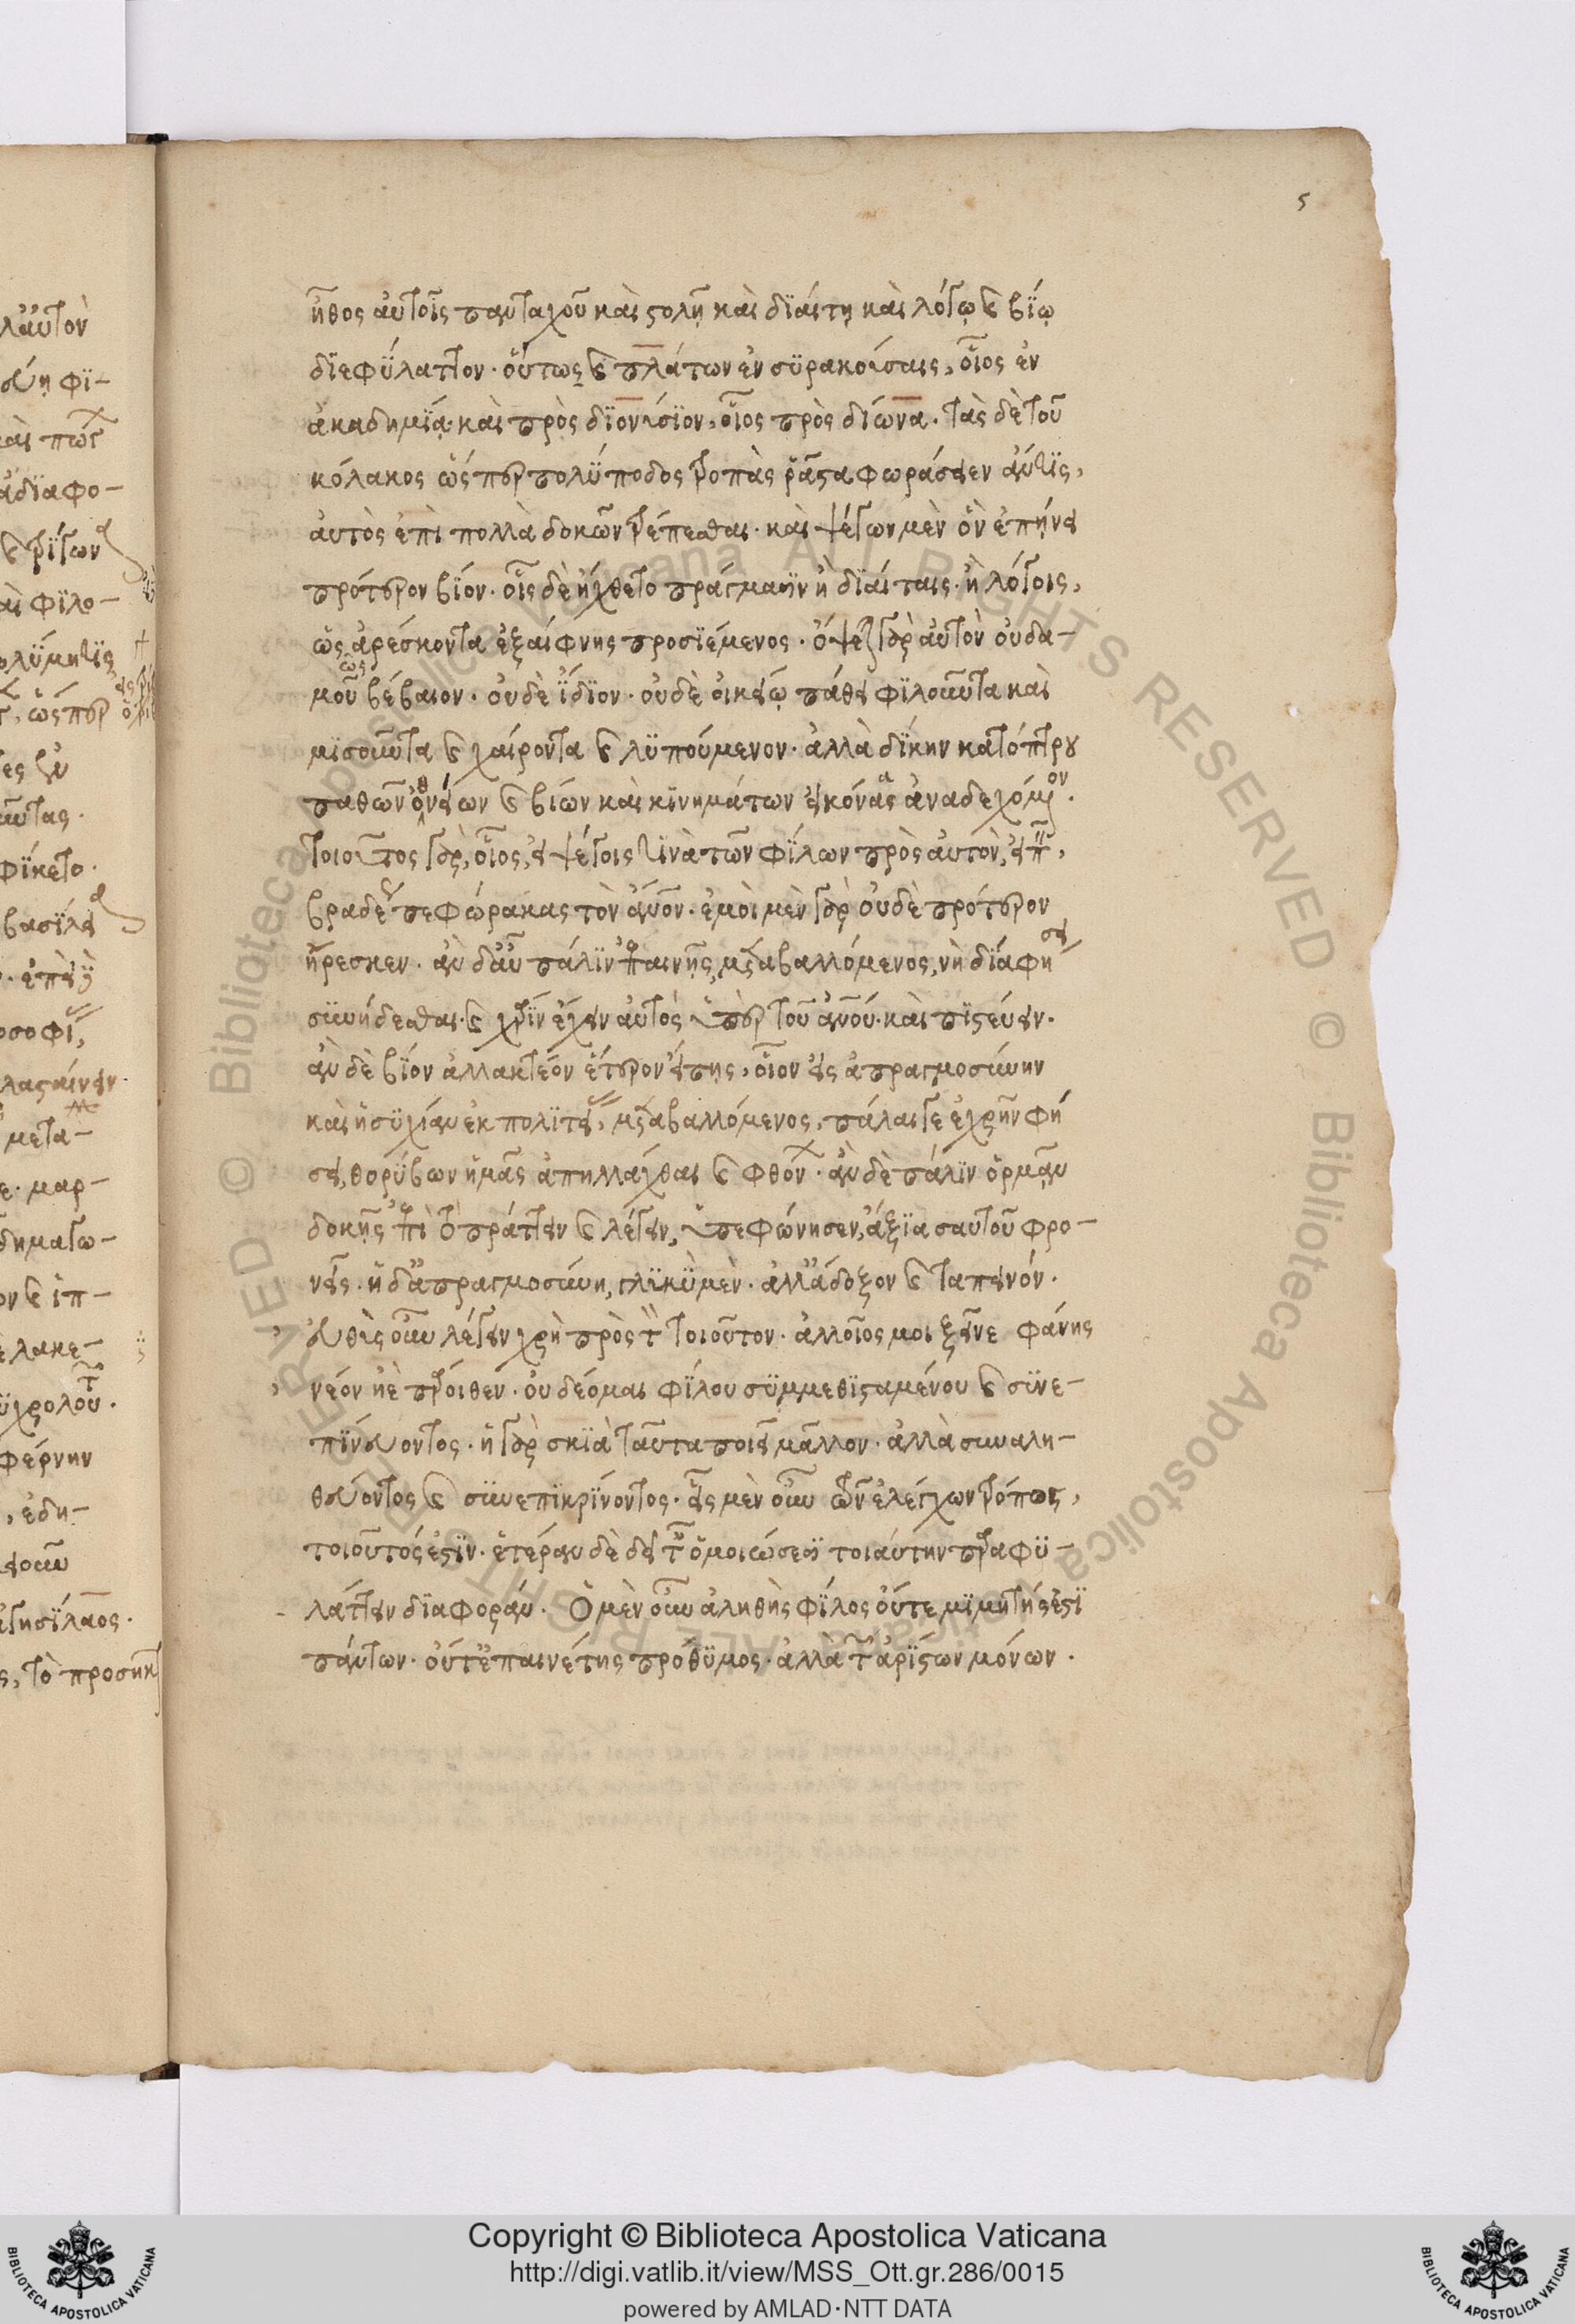 5
ἦθος αὐτοῖς πανταχοῦ καὶ στολῇ καὶ διαίτῃ καὶ λόγῳ καὶ βίῳ
διεφύλαττον. οὕτως καὶ πλάτων ἐν συρακούσαις, οἷος ἐν
ἀκαδημίᾳ· καὶ πρὸς διονύσιον, οἷος πρὸς δίωνα. τὰς δὲ τοῦ
κόλακος ὥσπερ πολύποδος τροπὰς ῥᾶστα φωράσειεν ἄν τις,
αὐτὸς ἐπὶ πολλὰ δοκῶν τρέπεσθαι. καὶ ψέγων μὲν ὃν ἐπῄνει
πρότερον βίον. οἷς δὲ ἤχθετο πράγμασιν ἢ διαίταις ἢ λόγοις,
ὡς ἀρέσκοντα ἐξαίφνης προσιέμενος. ὄψει γὰρ αὐτὸν οὐδα-
μοῦ βέβαιον. οὐδὲ ἴδιον. οὐδὲ οἰκείῳ πάθει φιλοῦντα καὶ
μισοῦντα καὶ χαίροντα καὶ λυπούμενον. ἀλλὰ δίκην κατόπτρου
παθῶν ὀθνείων καὶ βίων καὶ κινημάτων εἰκόνας ἀναδεχόμενον.
τοιοῦτος γὰρ, οἷος, εἰ ψέγοις τινὰ τῶν φίλων πρὸς αὐτὸν, εἰπεῖν,
βραδέως πεφώρακας τὸν ἄνον. ἐμοὶ μὲν γὰρ οὐδὲ πρότερον
ἤρεσκεν. ἂν δ' αὖ πάλιν ἐπαινῇς μεταβαλλόμενος, νὴ δία φήσει
συνήδεσθαι καὶ χάριν ἔχειν αὐτὸς ὑπὲρ τοῦ ἀνου. καὶ πιστεύειν.
ἂν δὲ βίον ἀλλακτέον ἕτερον εἴπῃς, οἷον εἰς ἀπραγμοσύνην
καὶ ἡσυχίαν ἐκ πολιτείας μεταβαλλόμενος, πάλαι γε ἐχρῆν φή
σει, θορύβων ἡμᾶς ἀπηλλάχθαι καὶ φθόνων. ἂν δὲ πάλιν ὁρμᾶν
δοκῇς ἐπὶ τὸ πράττειν καὶ λέγειν, ὑπεφώνησεν, ἄξια σαυτοῦ φρο-
νεῖς. ἡ δ' ἀπραγμοσύνη, γλυκὺ μὲν. ἀλλ' ἄδοξον καὶ ταπεινόν.
εὐθὺς οὖν λέγειν χρὴ πρὸς τὸν τοιοῦτον. ἀλλοῖος μοι ξεῖνε φάνης
νέον ἠὲ πάροιθεν. οὐ δέομαι φίλου συμμεθισταμένου καὶ συνε-
πινεύοντος. ἡ γὰρ σκιὰ ταῦτα ποιεῖ μᾶλλον. ἀλλὰ συναλη-
θεύοντος καὶ συνεπικρίνοντος. εἷς μὲν οὖν τῶν ἐλέγχων τρόπος,
τοιοῦτός ἐστιν. ἑτέραν δὲ δεῖ ταῖς ὁμοιώσεσι τοιαύτην παραφυ-
λάττειν διαφοράν. Ὁ μὲν οὖν ἀληθὴς φίλος οὔτε μιμητής ἐστι
πάντων. οὔτ' ἐπαινέτης πρόθυμος. ἀλλὰ τῶν ἀρίστων μόνων.
Copyright © Biblioteca Apostolica Vaticana
http://digi.vatlib.it/view/MSS_Ott.gr.286/0015
powered by AMLAD·NTT DATA